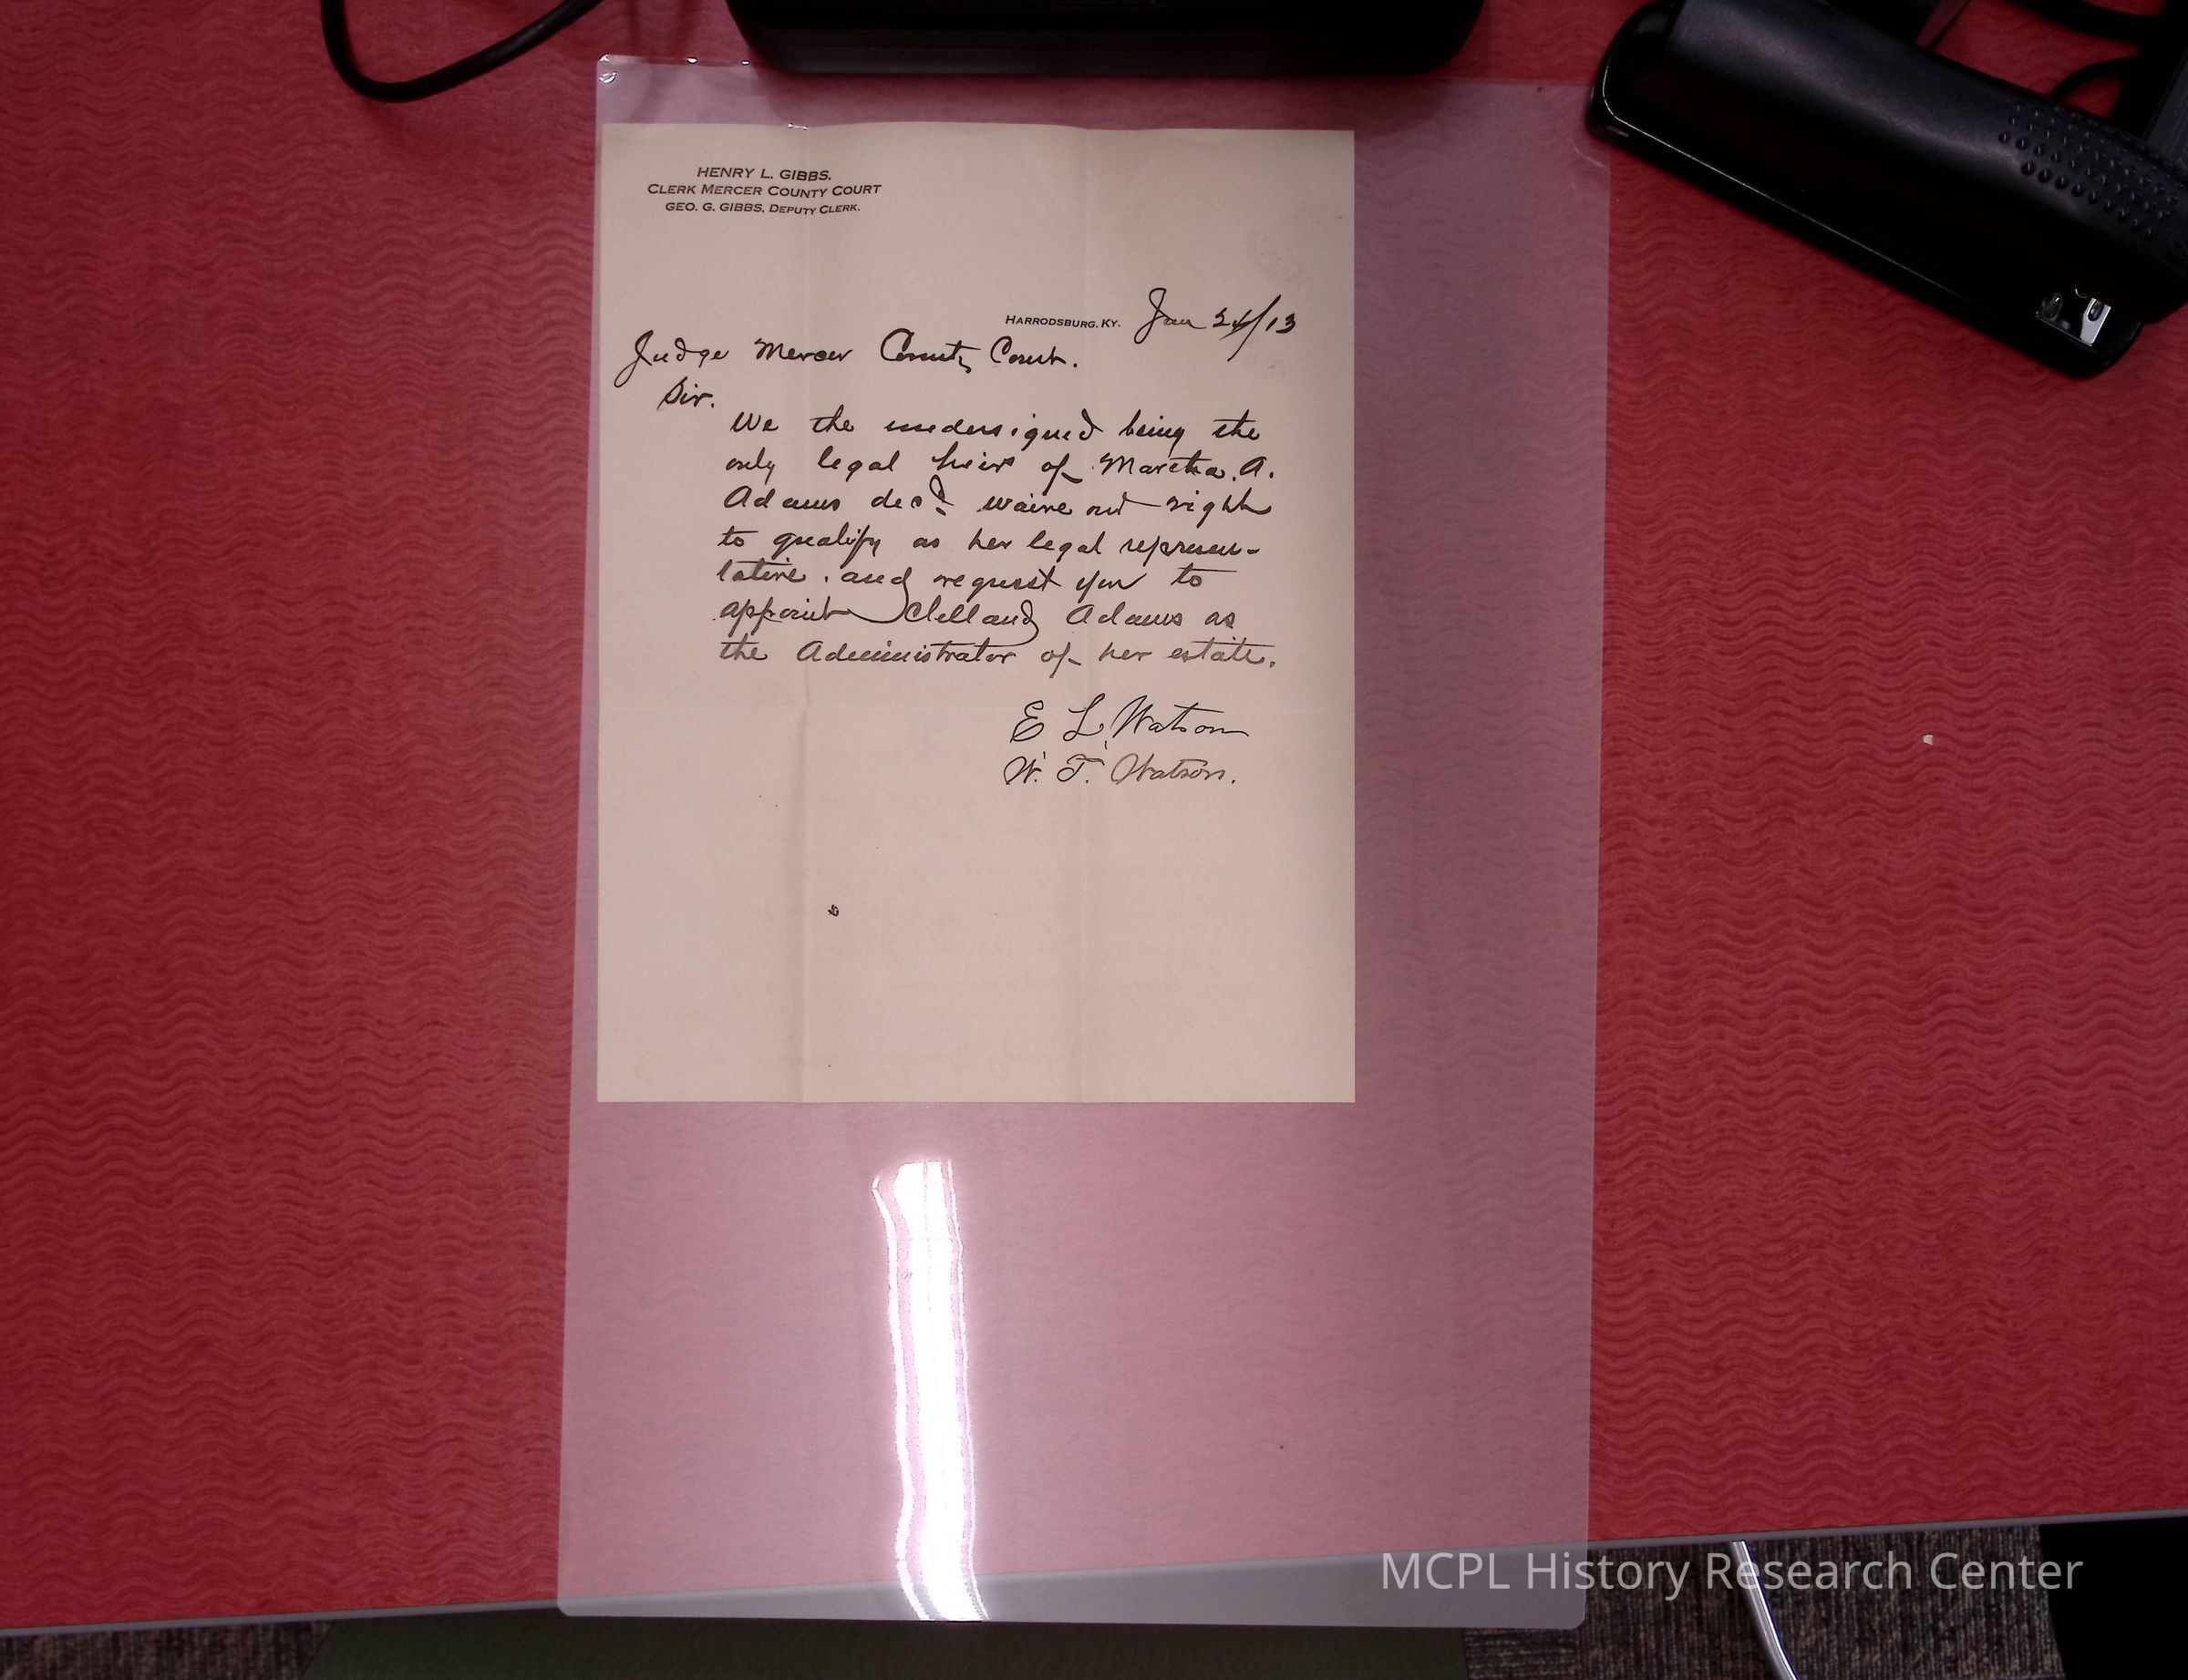 HENRY L. GIBBS.
CLERK MERCER COUNTY COURT
GEO. G. GIBBS, DEPUTY CLERK.
HARRODSBURG, KY. Jan 24/13
Judge Mercer County Court.
Sir.
We the undersigned being the
only legal heirs of Martha. A.
Adams decd. waive our right
to qualify as her legal represen-
tative. and request you to
appoint Clelland Adams as
the Administrator of her estate.
E L Watson
W. T. Watson.
MCPL History Research Center